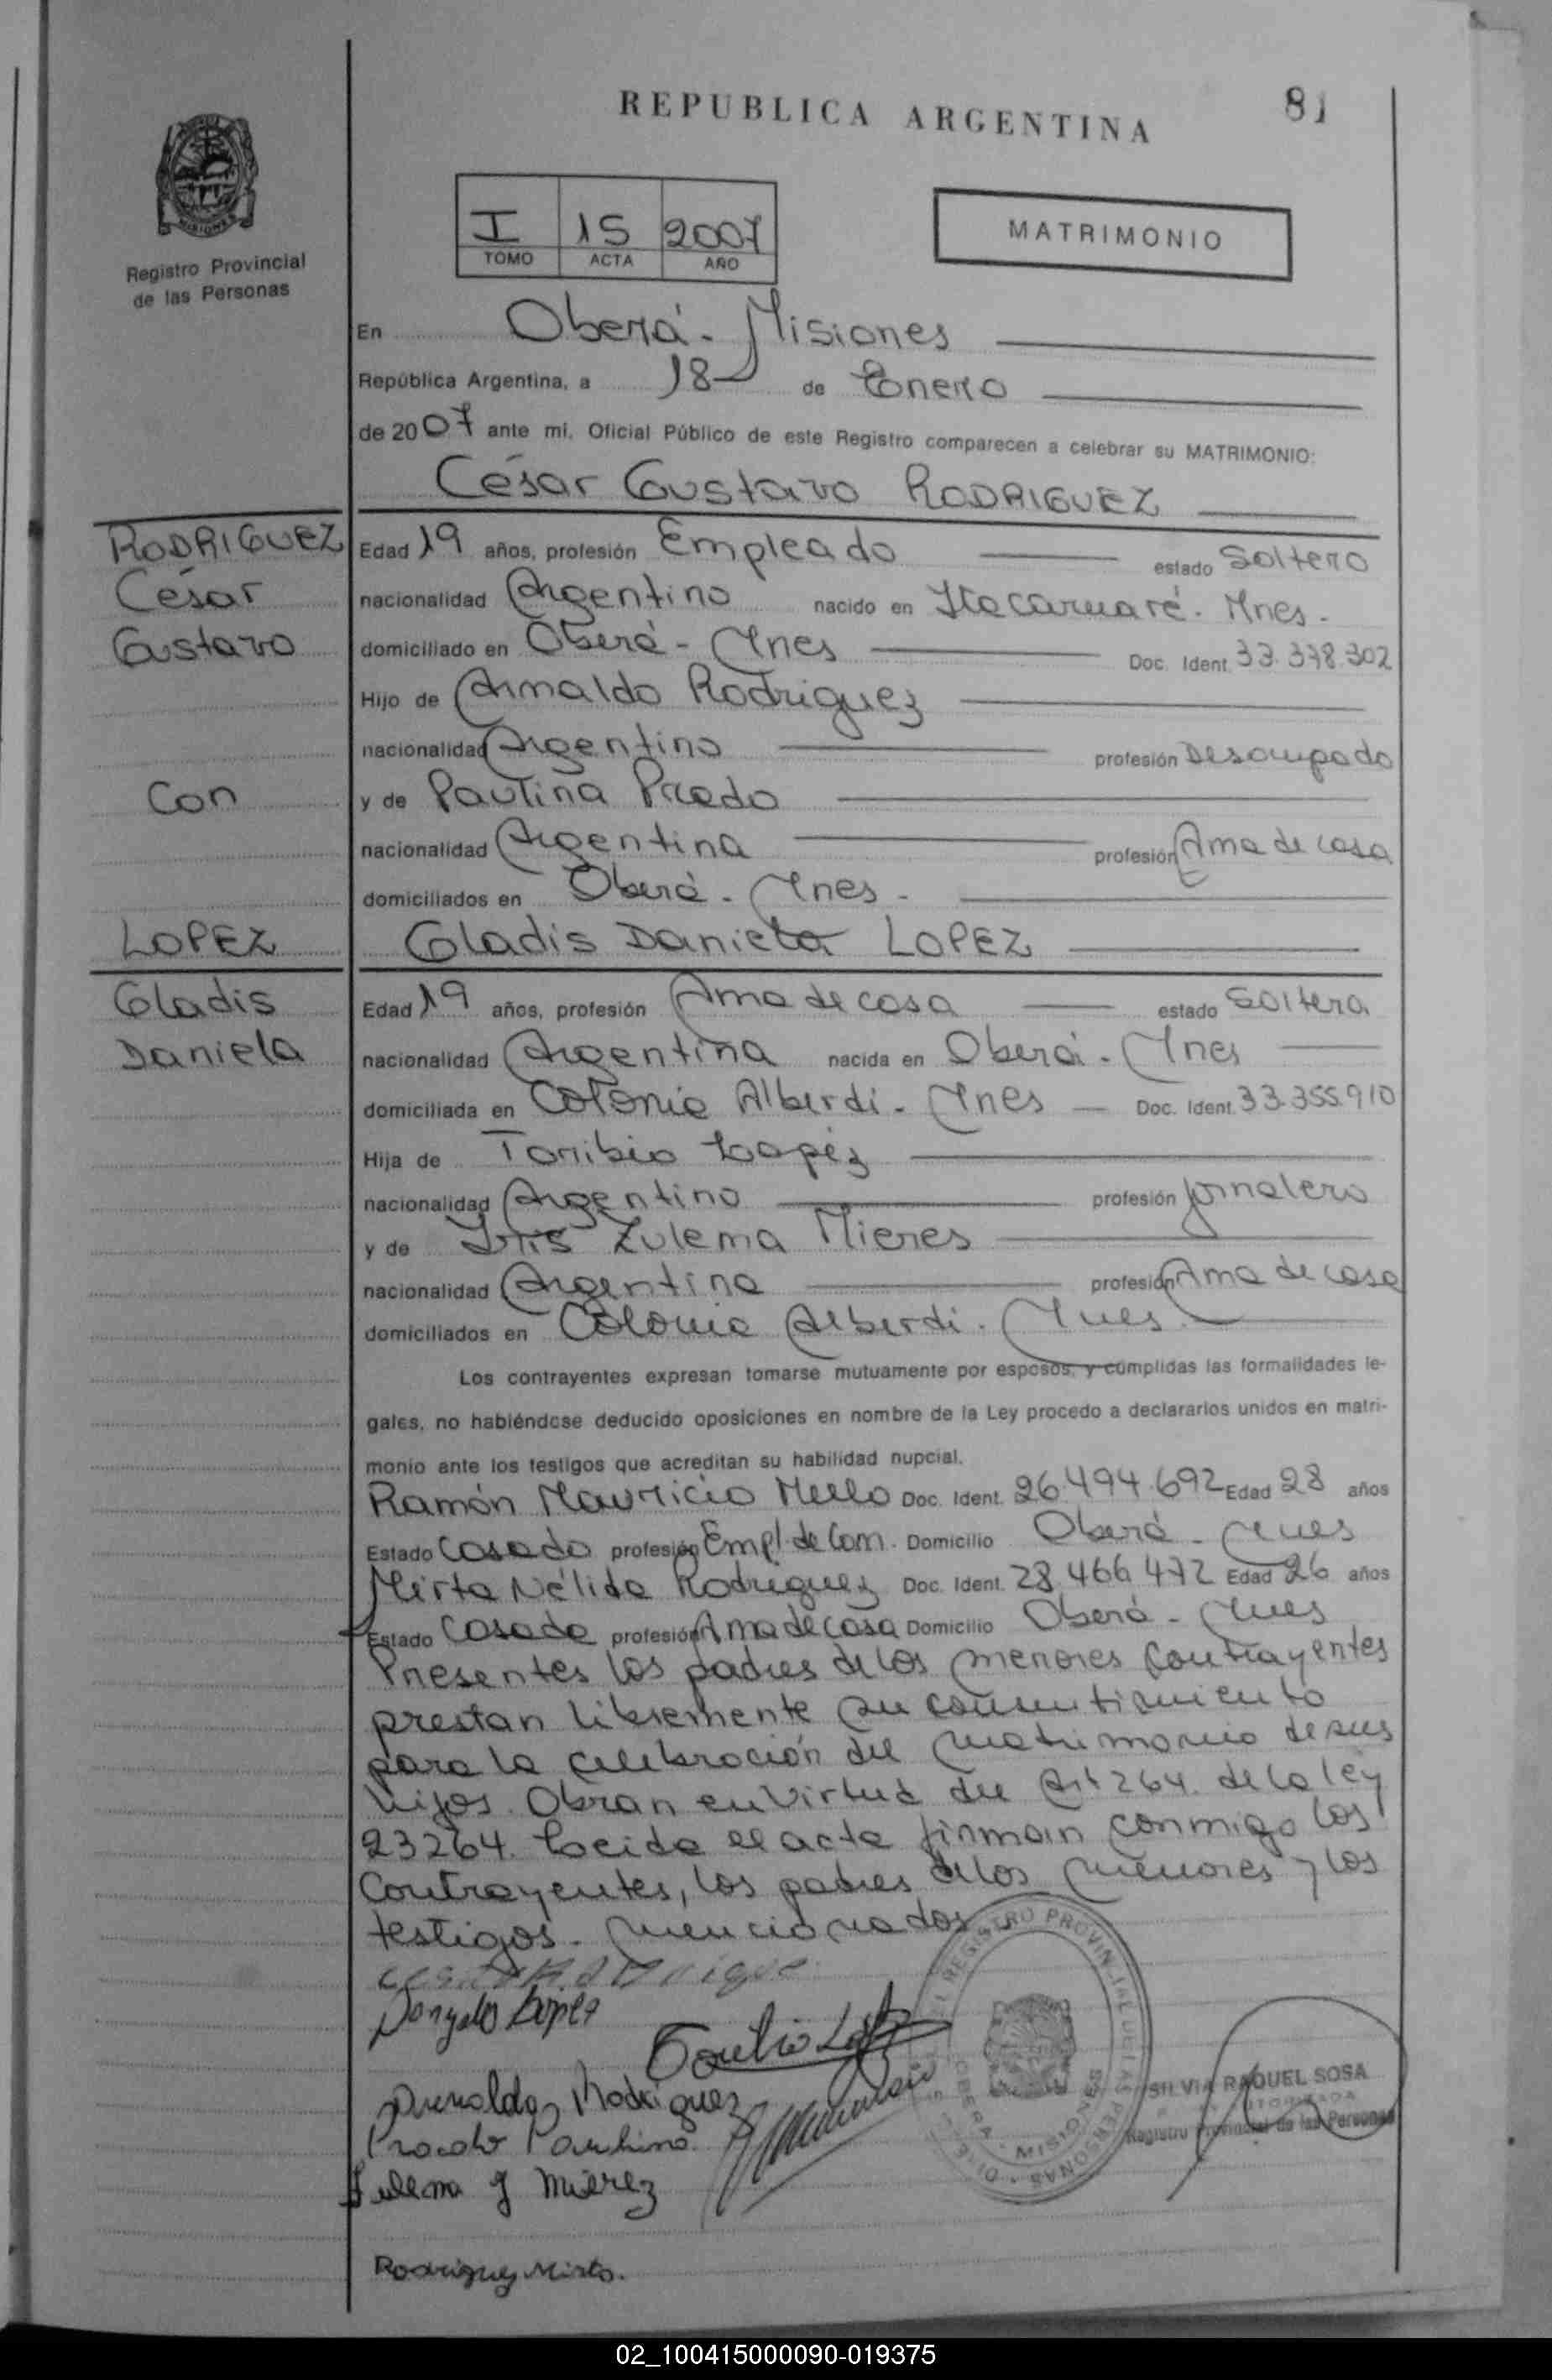 REPUBLICA ARGENTINA
81
MISIONES
Registro Provincial
de las Personas
I 15 2007
TOMO ACTA AÑO
MATRIMONIO
En Oberá - Misiones
República Argentina, a 18 de Enero
de 2007 ante mi, Oficial Público de este Registro comparecen a celebrar su MATRIMONIO:
César Gustavo RODRIGUEZ
RODRIGUEZ
César
Gustavo
Con
LOPEZ
Gladis
Daniela
Edad 19 años, profesión Empleado estado Soltero
nacionalidad Argentino nacido en Itacaruaré - Mnes -
domiciliado en Oberá - Mnes Doc. Ident. 33.378.302
Hijo de Arnaldo Rodriguez
nacionalidad Argentino profesión Desocupado
y de Paulina Prado
nacionalidad Argentina profesión Ama de casa
domiciliados en Oberá - Mnes -
Gladis Daniela LOPEZ
Edad 19 años, profesión Ama de casa estado Soltera
nacionalidad Argentina nacida en Oberá - Mnes
domiciliada en Colonia Alberdi - Mnes Doc. Ident. 33.355.910
Hija de Toribio Lopez
nacionalidad Argentino profesión Jornalero
y de Iris Zulema Mieres
nacionalidad Argentina profesión Ama de casa
domiciliados en Colonia Alberdi - Mnes
Los contrayentes expresan tomarse mutuamente por esposos, y cumplidas las formalidades le-
gales, no habiéndose deducido oposiciones en nombre de la Ley procedo a declararlos unidos en matri-
monio ante los testigos que acreditan su habilidad nupcial.
Ramón Mauricio Mello Doc. Ident. 26.494.692 Edad 28 años
Estado Casado profesión Empl. de Com. Domicilio Oberá - Mnes
Mirta Nélida Rodriguez Doc. Ident. 28.466.472 Edad 26 años
Estado Casada profesión Ama de casa Domicilio Oberá - Mnes
Presentes los padres de los menores contrayentes
prestan libremente su consentimiento
para la celebración del matrimonio de sus
hijos. Obran en virtud del Art 264. de la ley
23264. Leida el acta firman conmigo los
contrayentes, los padres de los menores y los
testigos. mencionados.
Lopez
Toribio
Arnaldo Rodriguez
Prado Paulina
Zulema Y Mierez
REGISTRO PROVINCIAL DE LAS PERSONAS
OBERA - MISIONES
SILVIA RAQUEL SOSA
Registro Provincial de las Personas
Rodriguez Mirta.
02_100415000090-019375